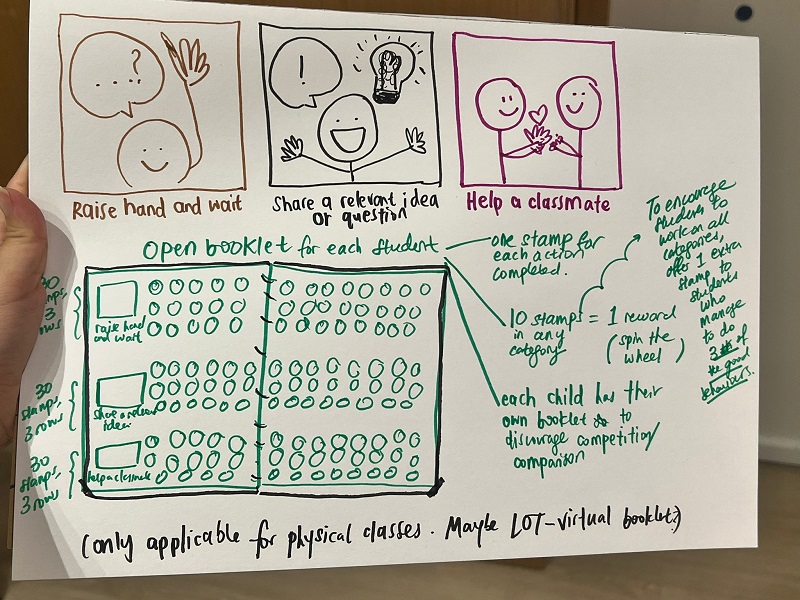 ? ....
!
Raise hand and wait
Share a relevant idea
or question
Help a classmate
Open booklet for each student
one stamp for
each action
completed.
10 stamps = 1 reward
in any
category
(spin the
wheel)
each child has their
own booklet to
discourage competition/
comparison
To encourage
students to
work on all
categories,
offer 1 extra
stamp to
students
who
manage
to do
3 of
the good
behaviours.
30
stamps,
3
rows
raise hand
and wait
30
stamps,
3 rows
share a relevant
idea
30
stamps,
3 rows
help a classmate
(only applicable for physical classes. Maybe LOT-virtual booklet?)